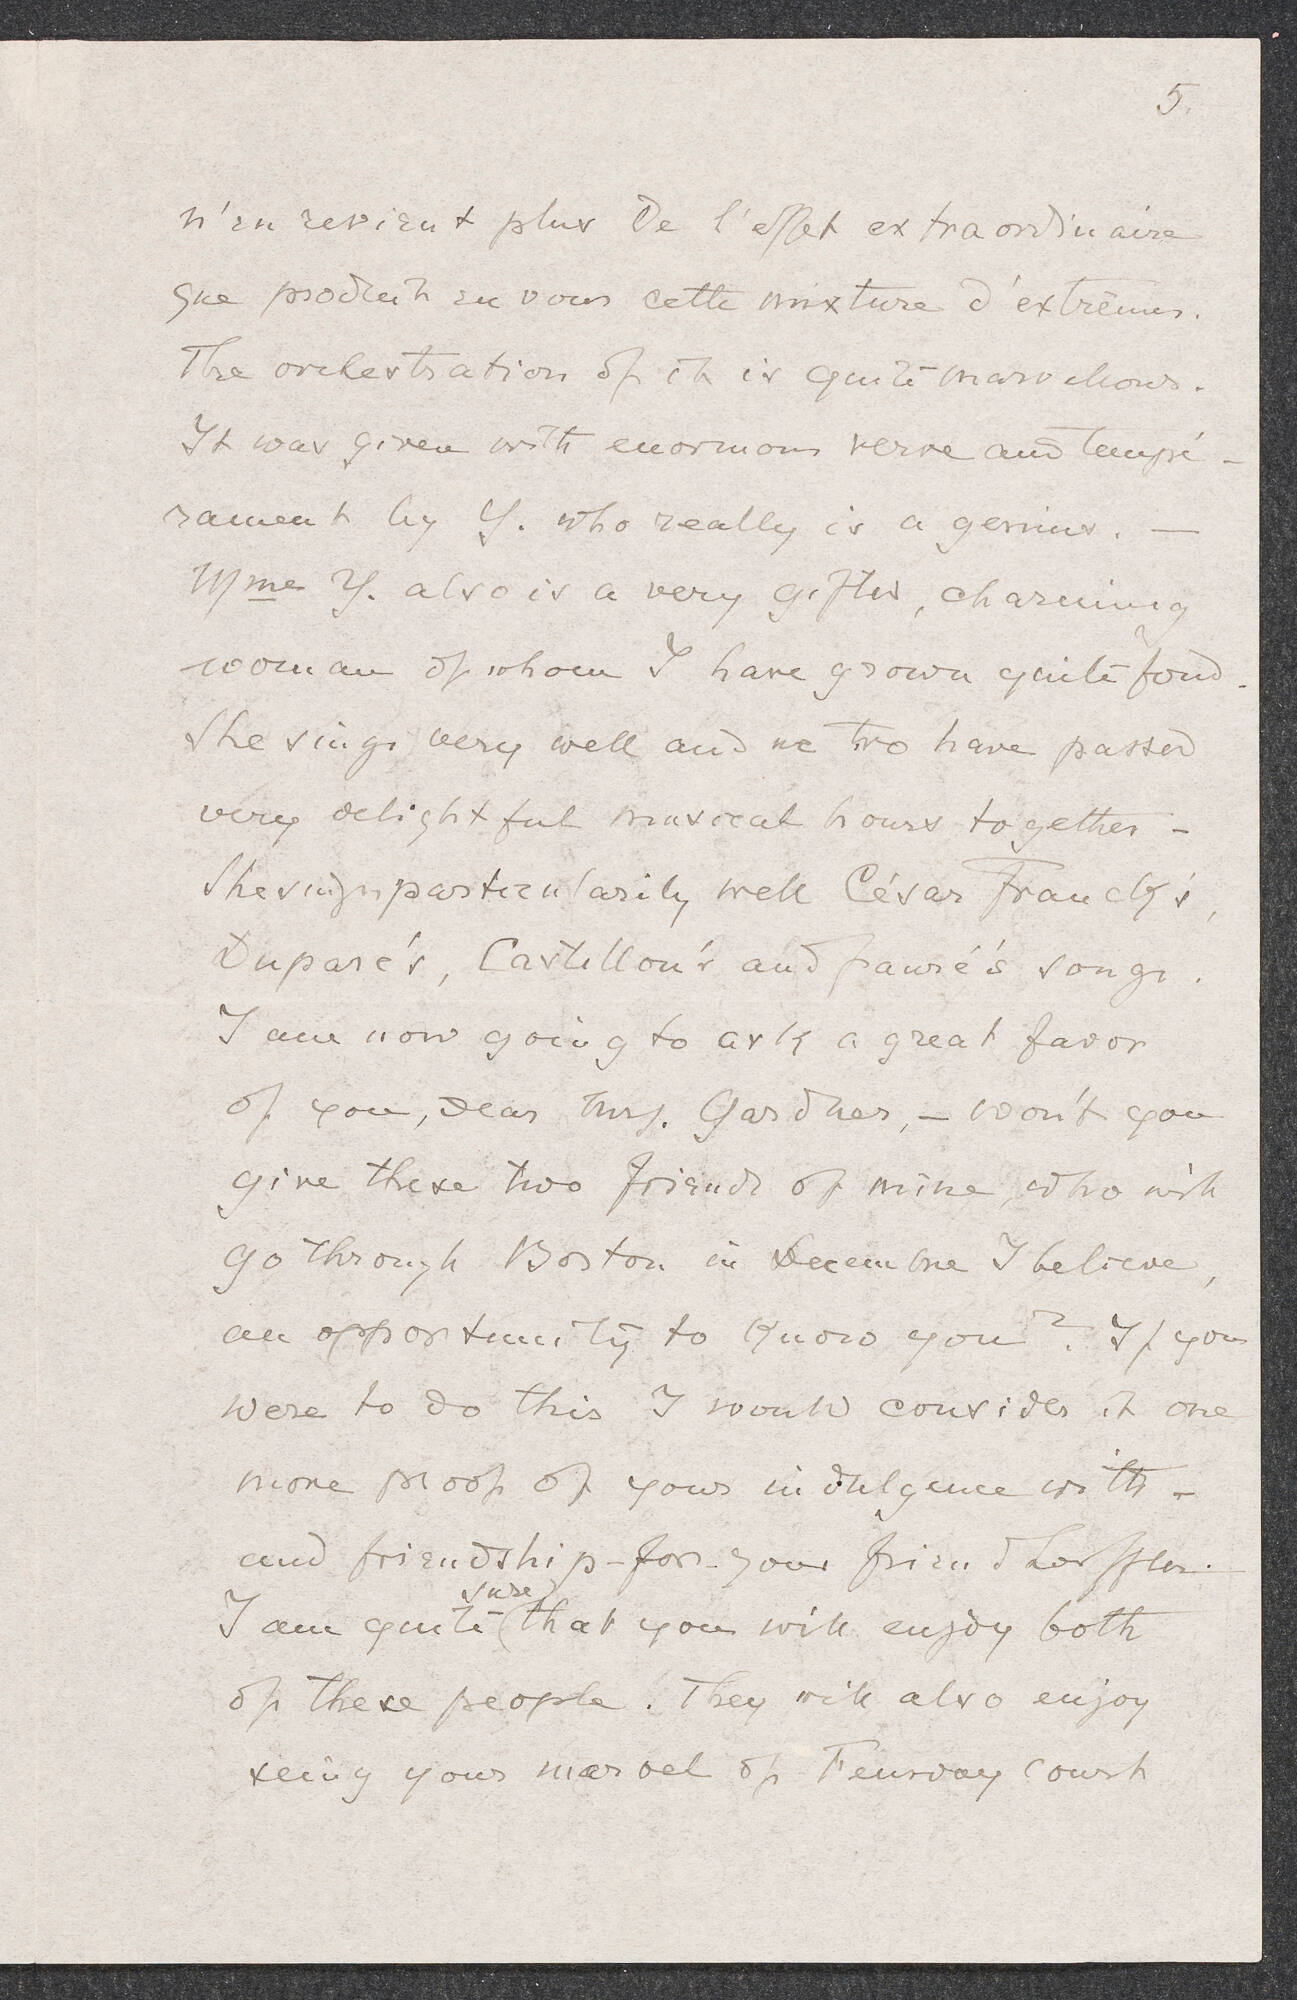 5.
n'en revient plus de l'effet extraordinaire
que produit en vous cette mixture d'extrêmes.
The orchestration of it is quite marvellous.
It was given with enormous verve and tempé-
rament by Y. who really is a genius. —
Mme Y. also is a very gifted, charming
woman of whom I have grown quite fond.
She sings very well and we two have passed
very delightful musical hours together -
She sings particularily well César Franck's,
Duparc's, Castillon's and fauré's songs.
I am now going to ask a great favor
of you, dear Mrs. Gardner, — won't you
give these two friends of mine, who will
go through Boston in Decembre I believe,
an opportunity to know you? If you
were to do this I would consider it one
more proof of your indulgence with -
and friendship - for - your friend Loeffler.
sure
I am quite (that you will enjoy both
of these people. They will also enjoy
seing your marvel of Fenway Court